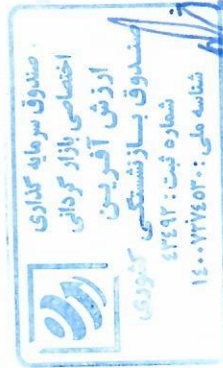 صندوق سرمایه گذاری
اختصاصی بازار گردانی
ارزش آفرین
صندوق بازنشستگی
کشوری
شماره ثبت : ۴۳۴۹۲
شناسه ملی : ۱۴۰۰۷۲۷۴۵۳۰